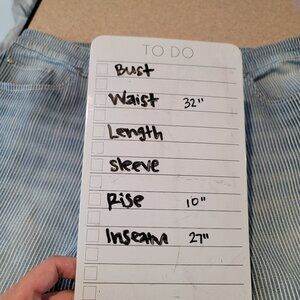 TO DO
Bust
Waist 32"
Length
Sleeve
Rise 10"
Inseam 27"